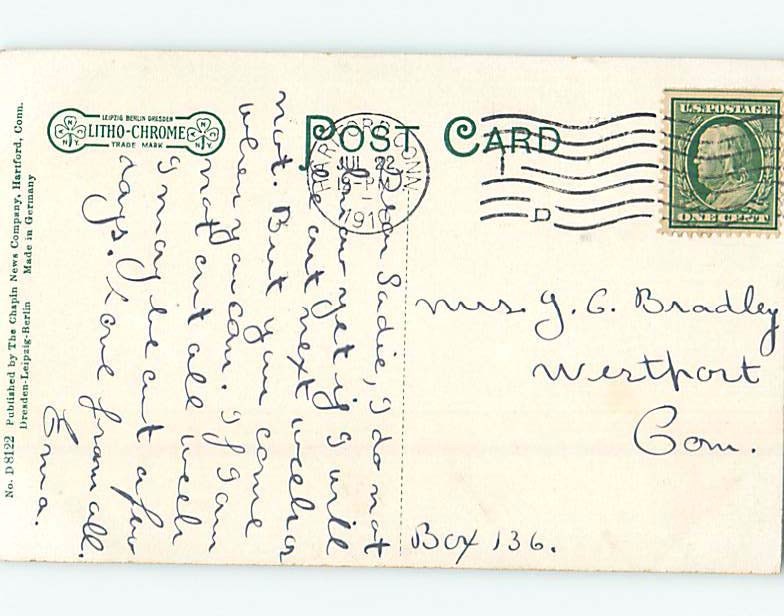 No. D 8122 Published by The Chapin News Company, Hartford, Conn.
Dresden-Leipzig-Berlin Made in Germany
LEIPZIG BERLIN DRESDEN
LITHO-CHROME
TRADE MARK
N.Y.
N.Y.
POST CARD
HARTFORD CONN
JUL 22
12-PM
1910
D
U.S. POSTAGE
ONE CENT
Dear Sadie, I do not
know yet if I will
be out next week or
not. But you come
when you can. If I am
not out all week
I may be out a few
days. Love from all.
Erma.
Mrs J. C. Bradley
Westport
Con.
Box 136.